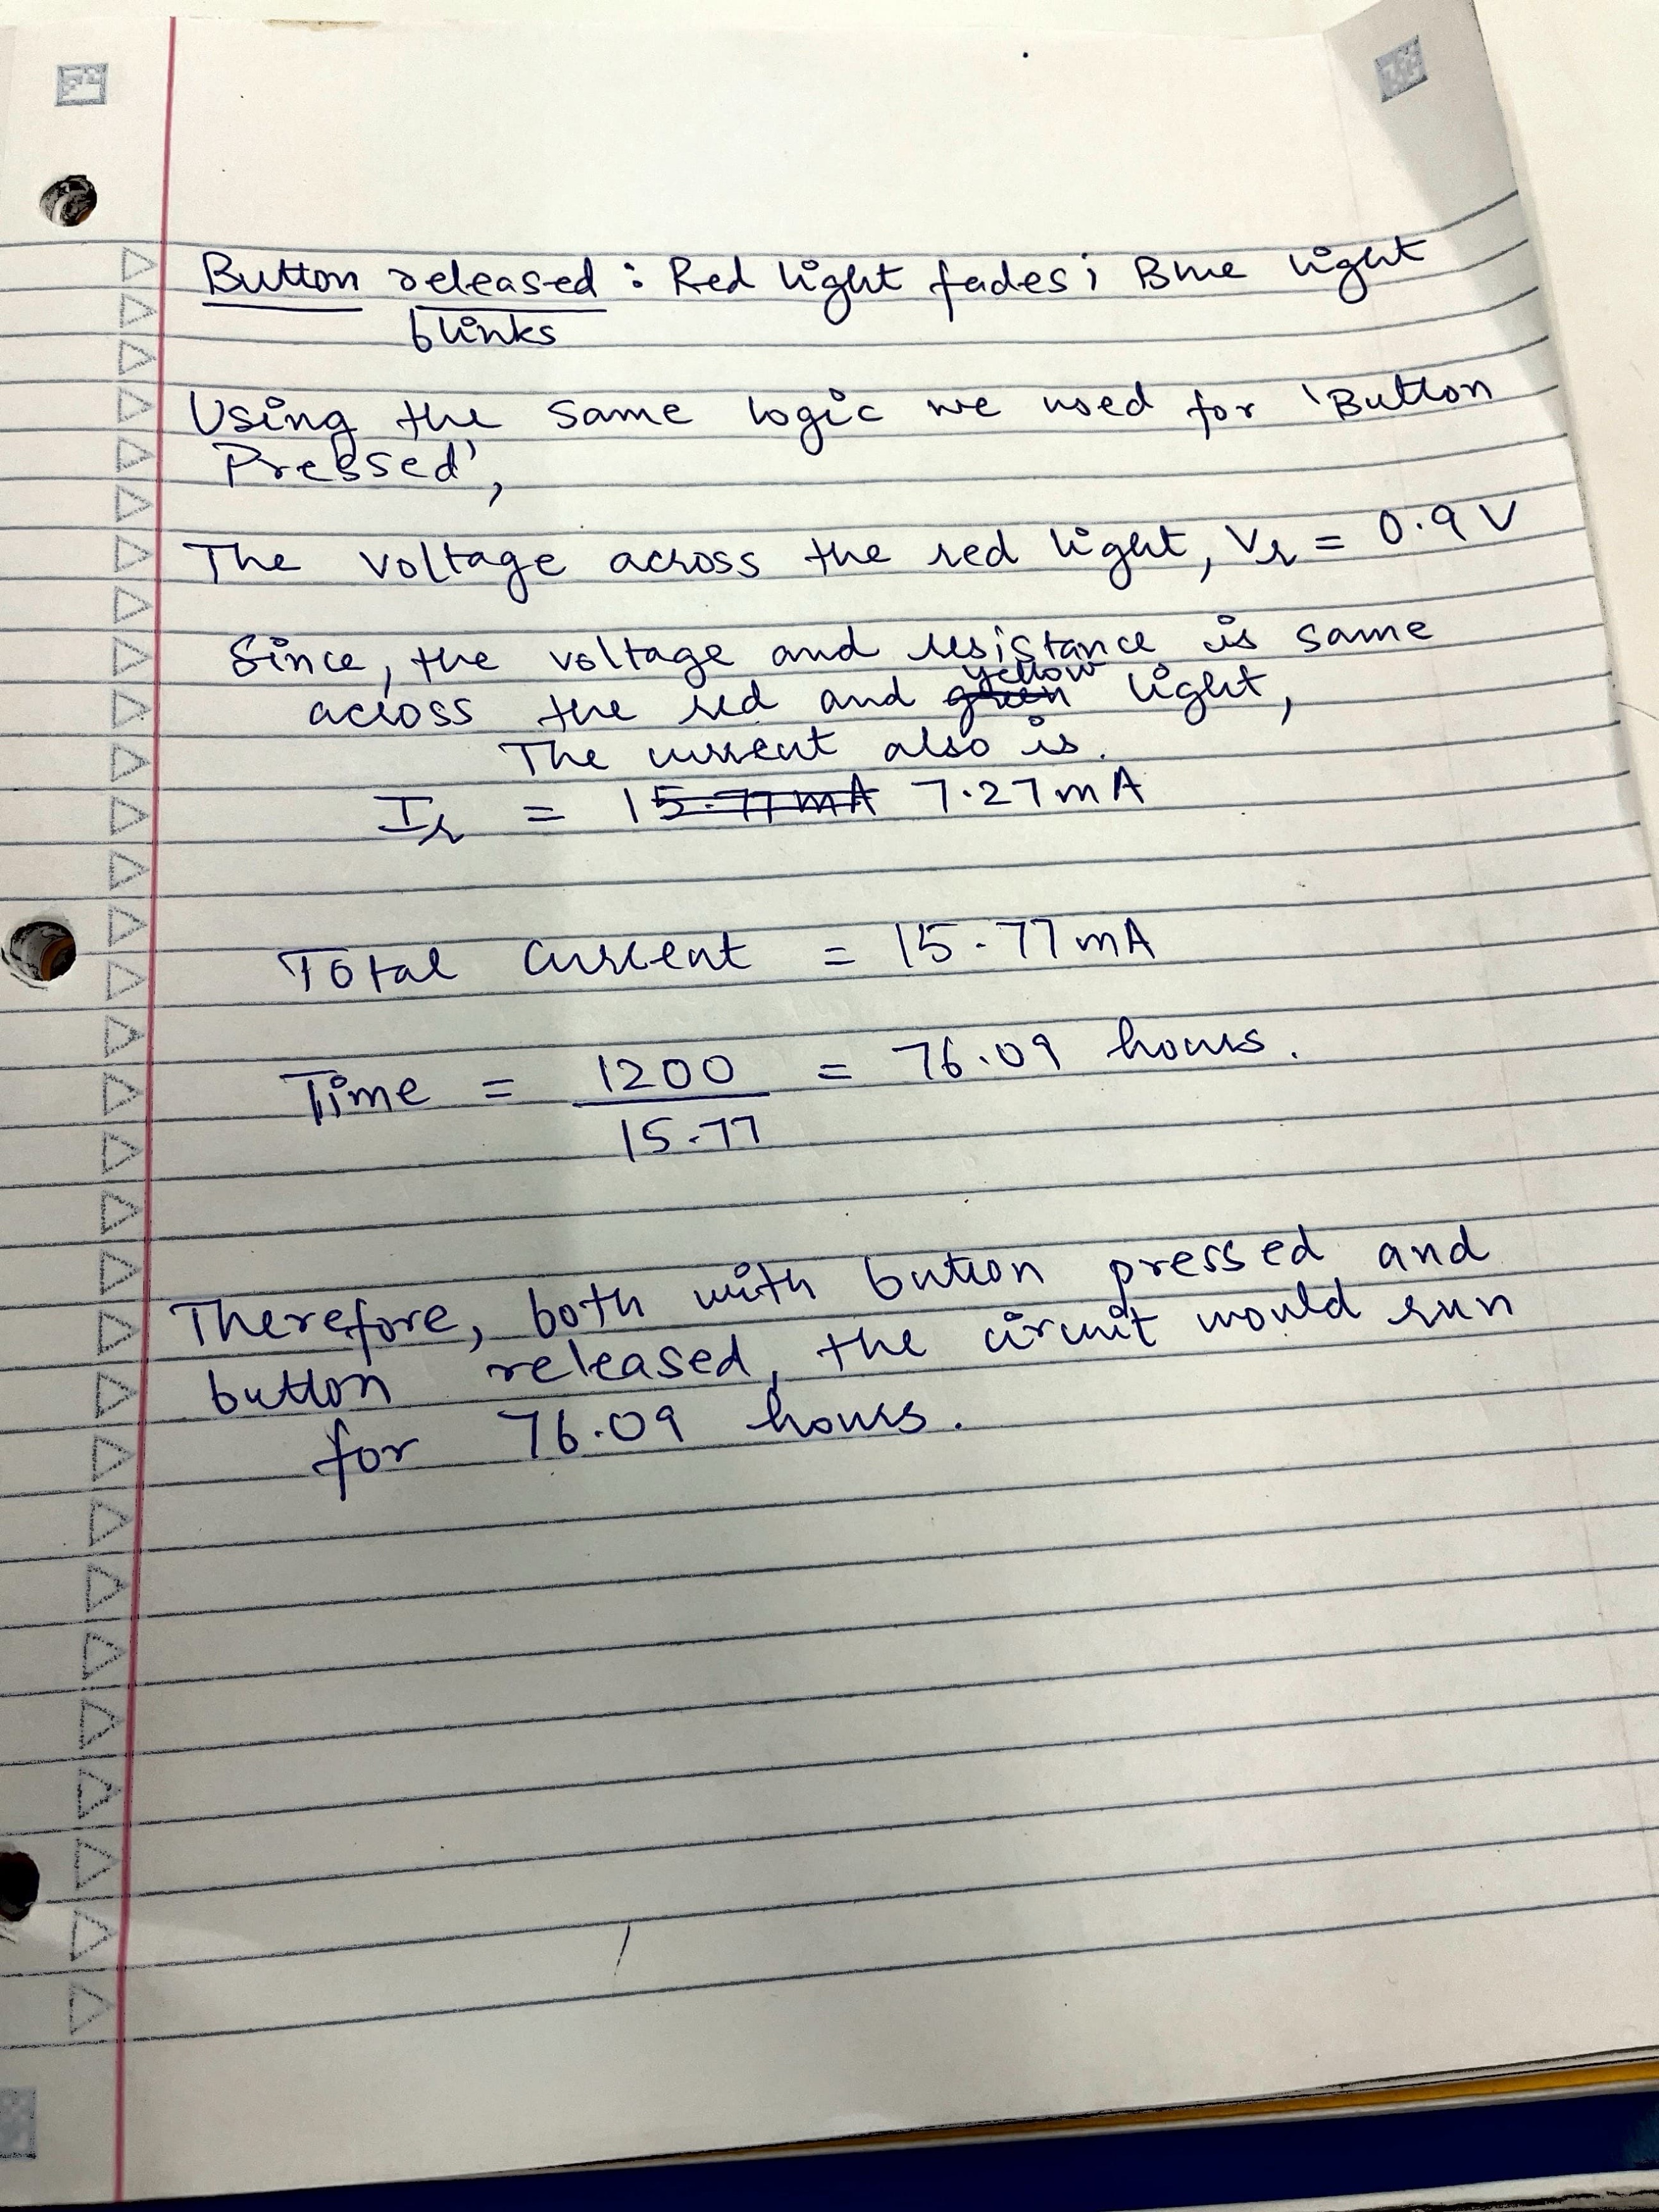 Button released : Red light fades; Blue light
blinks
Using the same logic we used for 'Button
Pressed',
The voltage across the red light, Vr = 0.9 V
Since, the voltage and resistance is same
across the red and green yellow light,
The current also is.
Ir = 15.77 mA 7.27 mA
Total Current = 15.77 mA
Time = 1200 / 15.77 = 76.09 hours.
Therefore, both with button pressed and
button released, the circuit would run
for 76.09 hours.